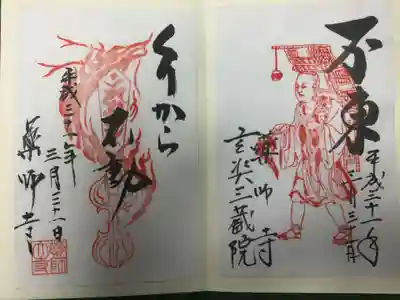 不東
平成三十一年
三月三十一日
薬師寺
玄奘三蔵院
力から
不動
平成三十一年
三月三十一日
薬師寺